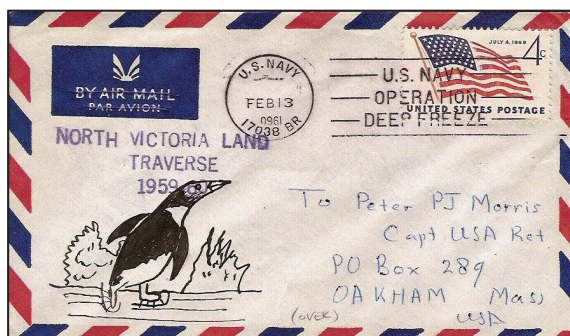 BY AIR MAIL
PAR AVION
U.S. NAVY
FEB 13
0961
17038 BR
U.S. NAVY
OPERATION
DEEP FREEZE
JULY 4, 1960
4c
UNITED STATES POSTAGE
NORTH VICTORIA LAND
TRAVERSE
1959
To Peter PJ Morris
Capt USA Ret
PO Box 289
OAKHAM Mass
USA
(OVER)